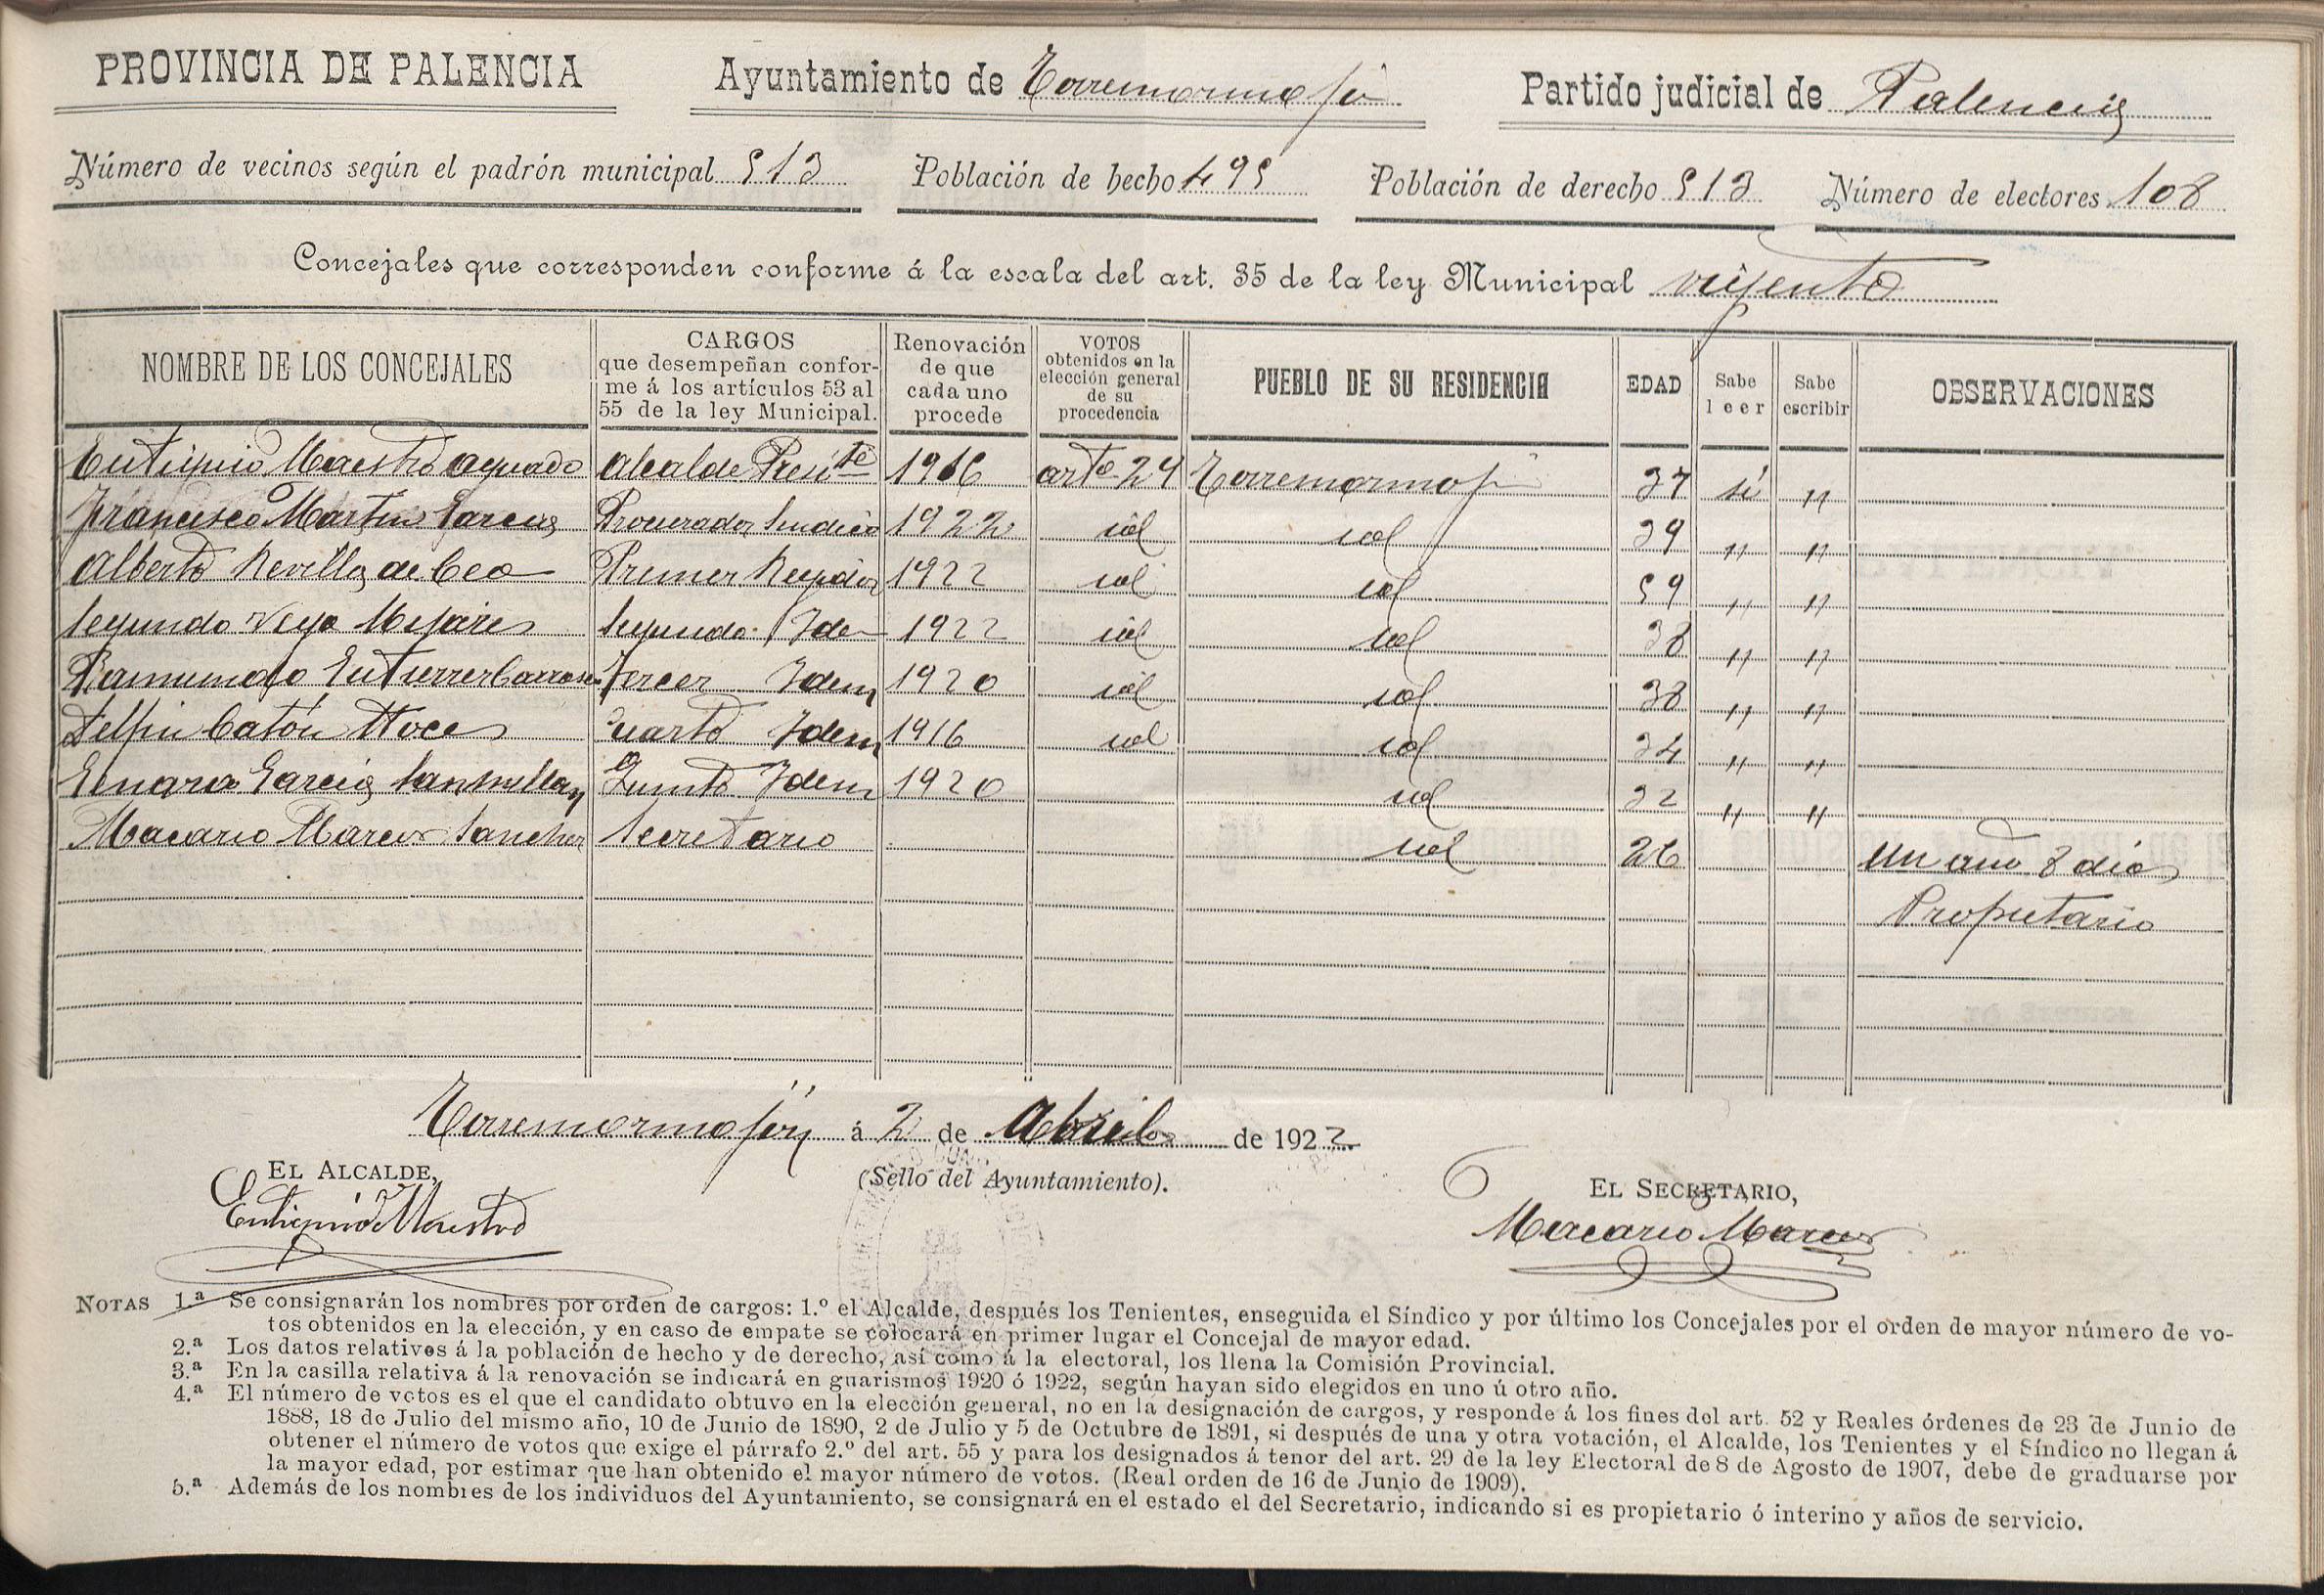 PROVINCIA DE PALENCIA Ayuntamiento de Torremormojón Partido judicial de Palencia
Número de vecinos según el padrón municipal 513 Población de hecho 495 Población de derecho 513 Número de electores 108
Concejales que corresponden conforme á la escala del art. 35 de la ley Municipal vigente
NOMBRE DE LOS CONCEJALES CARGOS que desempeñan conforme á los artículos 53 al 55 de la ley Municipal. Renovación de que cada uno procede VOTOS obtenidos en la elección general de su procedencia PUEBLO DE SU RESIDENCIA EDAD Sabe leer Sabe escribir OBSERVACIONES
Eutiquio Maestro Aguado Alcalde Presite 1916 arto 29 Torremormojón 37 si "
Francisco Martin Garcia Procurador Sindico 1922 id id 39 " "
Alberto Revilla de Cea Primer Regidor 1922 id id 59 " "
Segundo Vega Mijares Segundo Idem 1922 id id 38 " "
Raimundo Gutierrez Tercer Idem 1920 id id 38 " "
Delfin Catón Cuarto Idem 1916 id id 34 " "
Genaro Garcia Sanmillan Quinto Idem 1920 id 32 " "
Macario Marcos Sanchez Secretario id 26 Un año 8 dias
Propietario
Torremormojón á 2 de Abril de 1922
EL ALCALDE, (Sello del Ayuntamiento). EL SECRETARIO,
Eutiquio Maestro Macario Marcos
NOTAS 1.ª Se consignarán los nombres por orden de cargos: 1.º el Alcalde, después los Tenientes, enseguida el Síndico y por último los Concejales por el orden de mayor número de vo-
tos obtenidos en la elección, y en caso de empate se colocará en primer lugar el Concejal de mayor edad.
2.ª Los datos relativos á la población de hecho y de derecho, así como á la electoral, los llena la Comisión Provincial.
3.ª En la casilla relativa á la renovación se indicará en guarismos 1920 ó 1922, según hayan sido elegidos en uno ú otro año.
4.ª El número de votos es el que el candidato obtuvo en la elección general, no en la designación de cargos, y responde á los fines del art. 52 y Reales órdenes de 23 de Junio de
1888, 18 de Julio del mismo año, 10 de Junio de 1890, 2 de Julio y 5 de Octubre de 1891, si después de una y otra votación, el Alcalde, los Tenientes y el Síndico no llegan á
obtener el número de votos que exige el párrafo 2.º del art. 55 y para los designados á tenor del art. 29 de la ley Electoral de 8 de Agosto de 1907, debe de graduarse por
la mayor edad, por estimar que han obtenido el mayor número de votos. (Real orden de 16 de Junio de 1909).
5.ª Además de los nombres de los individuos del Ayuntamiento, se consignará en el estado el del Secretario, indicando si es propietario ó interino y años de servicio.